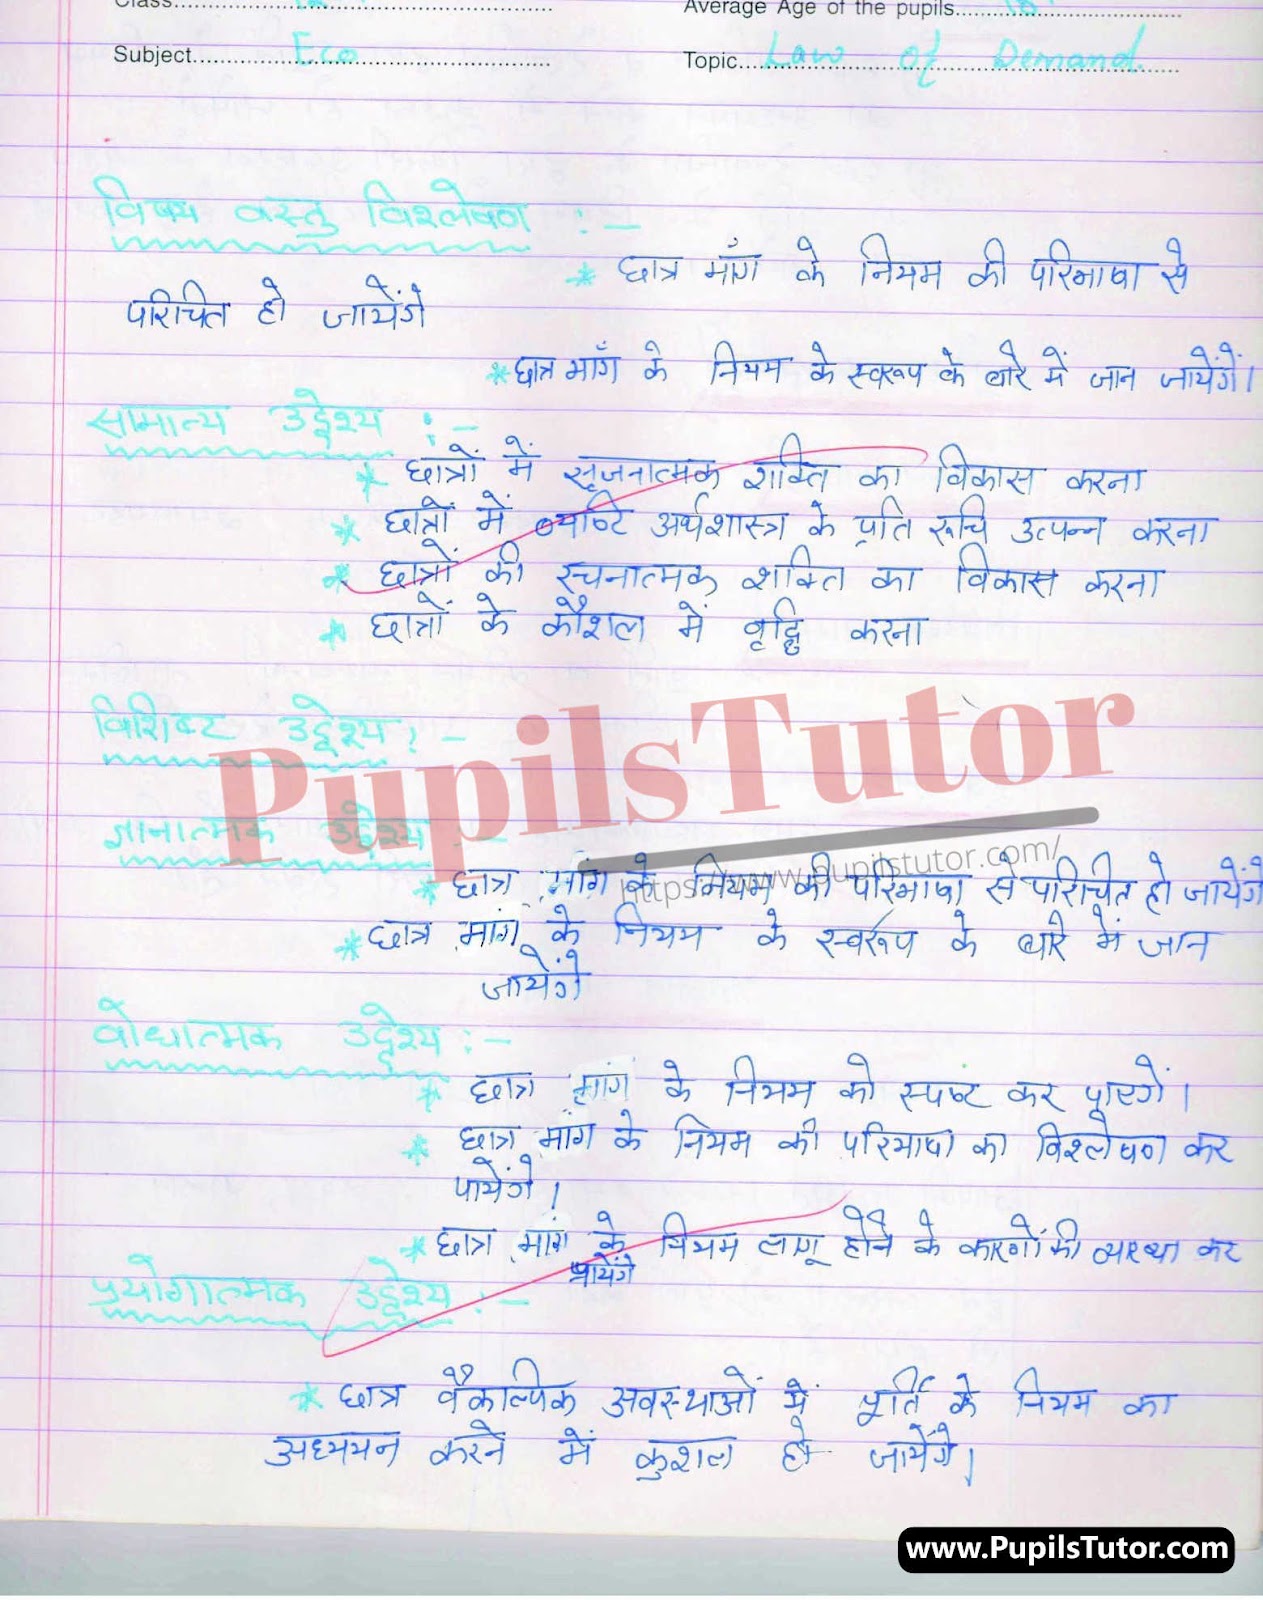 Class..........
Average Age of the pupils..........
Subject.......... Eco
Topic.......... Law of Demand.
विषय वस्तु विश्लेषण :-
* छात्र माँग के नियम की परिभाषा से
परिचित हो जायेंगे
* छात्र माँग के नियम के स्वरूप के बारे में जान जायेंगें।
सामान्य उद्देश्य :-
* छात्रों में सृजनात्मक शक्ति का विकास करना
* छात्रों में व्यष्टि अर्थशास्त्र के प्रति रूचि उत्पन्न करना
* छात्रों की रचनात्मक शक्ति का विकास करना
* छात्रों के कौशल में वृद्धि करना
विशिष्ट उद्देश्य :-
PupilsTutor
ज्ञानात्मक उद्देश्य :-
https://www.pupilstutor.com/
* छात्र मांग के नियम की परिभाषा से परिचित हो जायेंगे
* छात्र मांग के नियम के स्वरूप के बारे में जान
जायेंगे
बोधात्मक उद्देश्य :-
* छात्र मांग के नियम को स्पष्ट कर पाएगें।
* छात्र मांग के नियम की परिभाषा का विश्लेषण कर
पायेंगे।
* छात्र मांग के नियम लागू होने के कारणों की व्यख्या कर
पायेंगे
प्रयोगात्मक उद्देश्य :-
* छात्र वैकल्पिक अवस्थाओं में पूर्ति के नियम का
अध्ययन करने में कुशल हो जायेंगे।
www.PupilsTutor.com